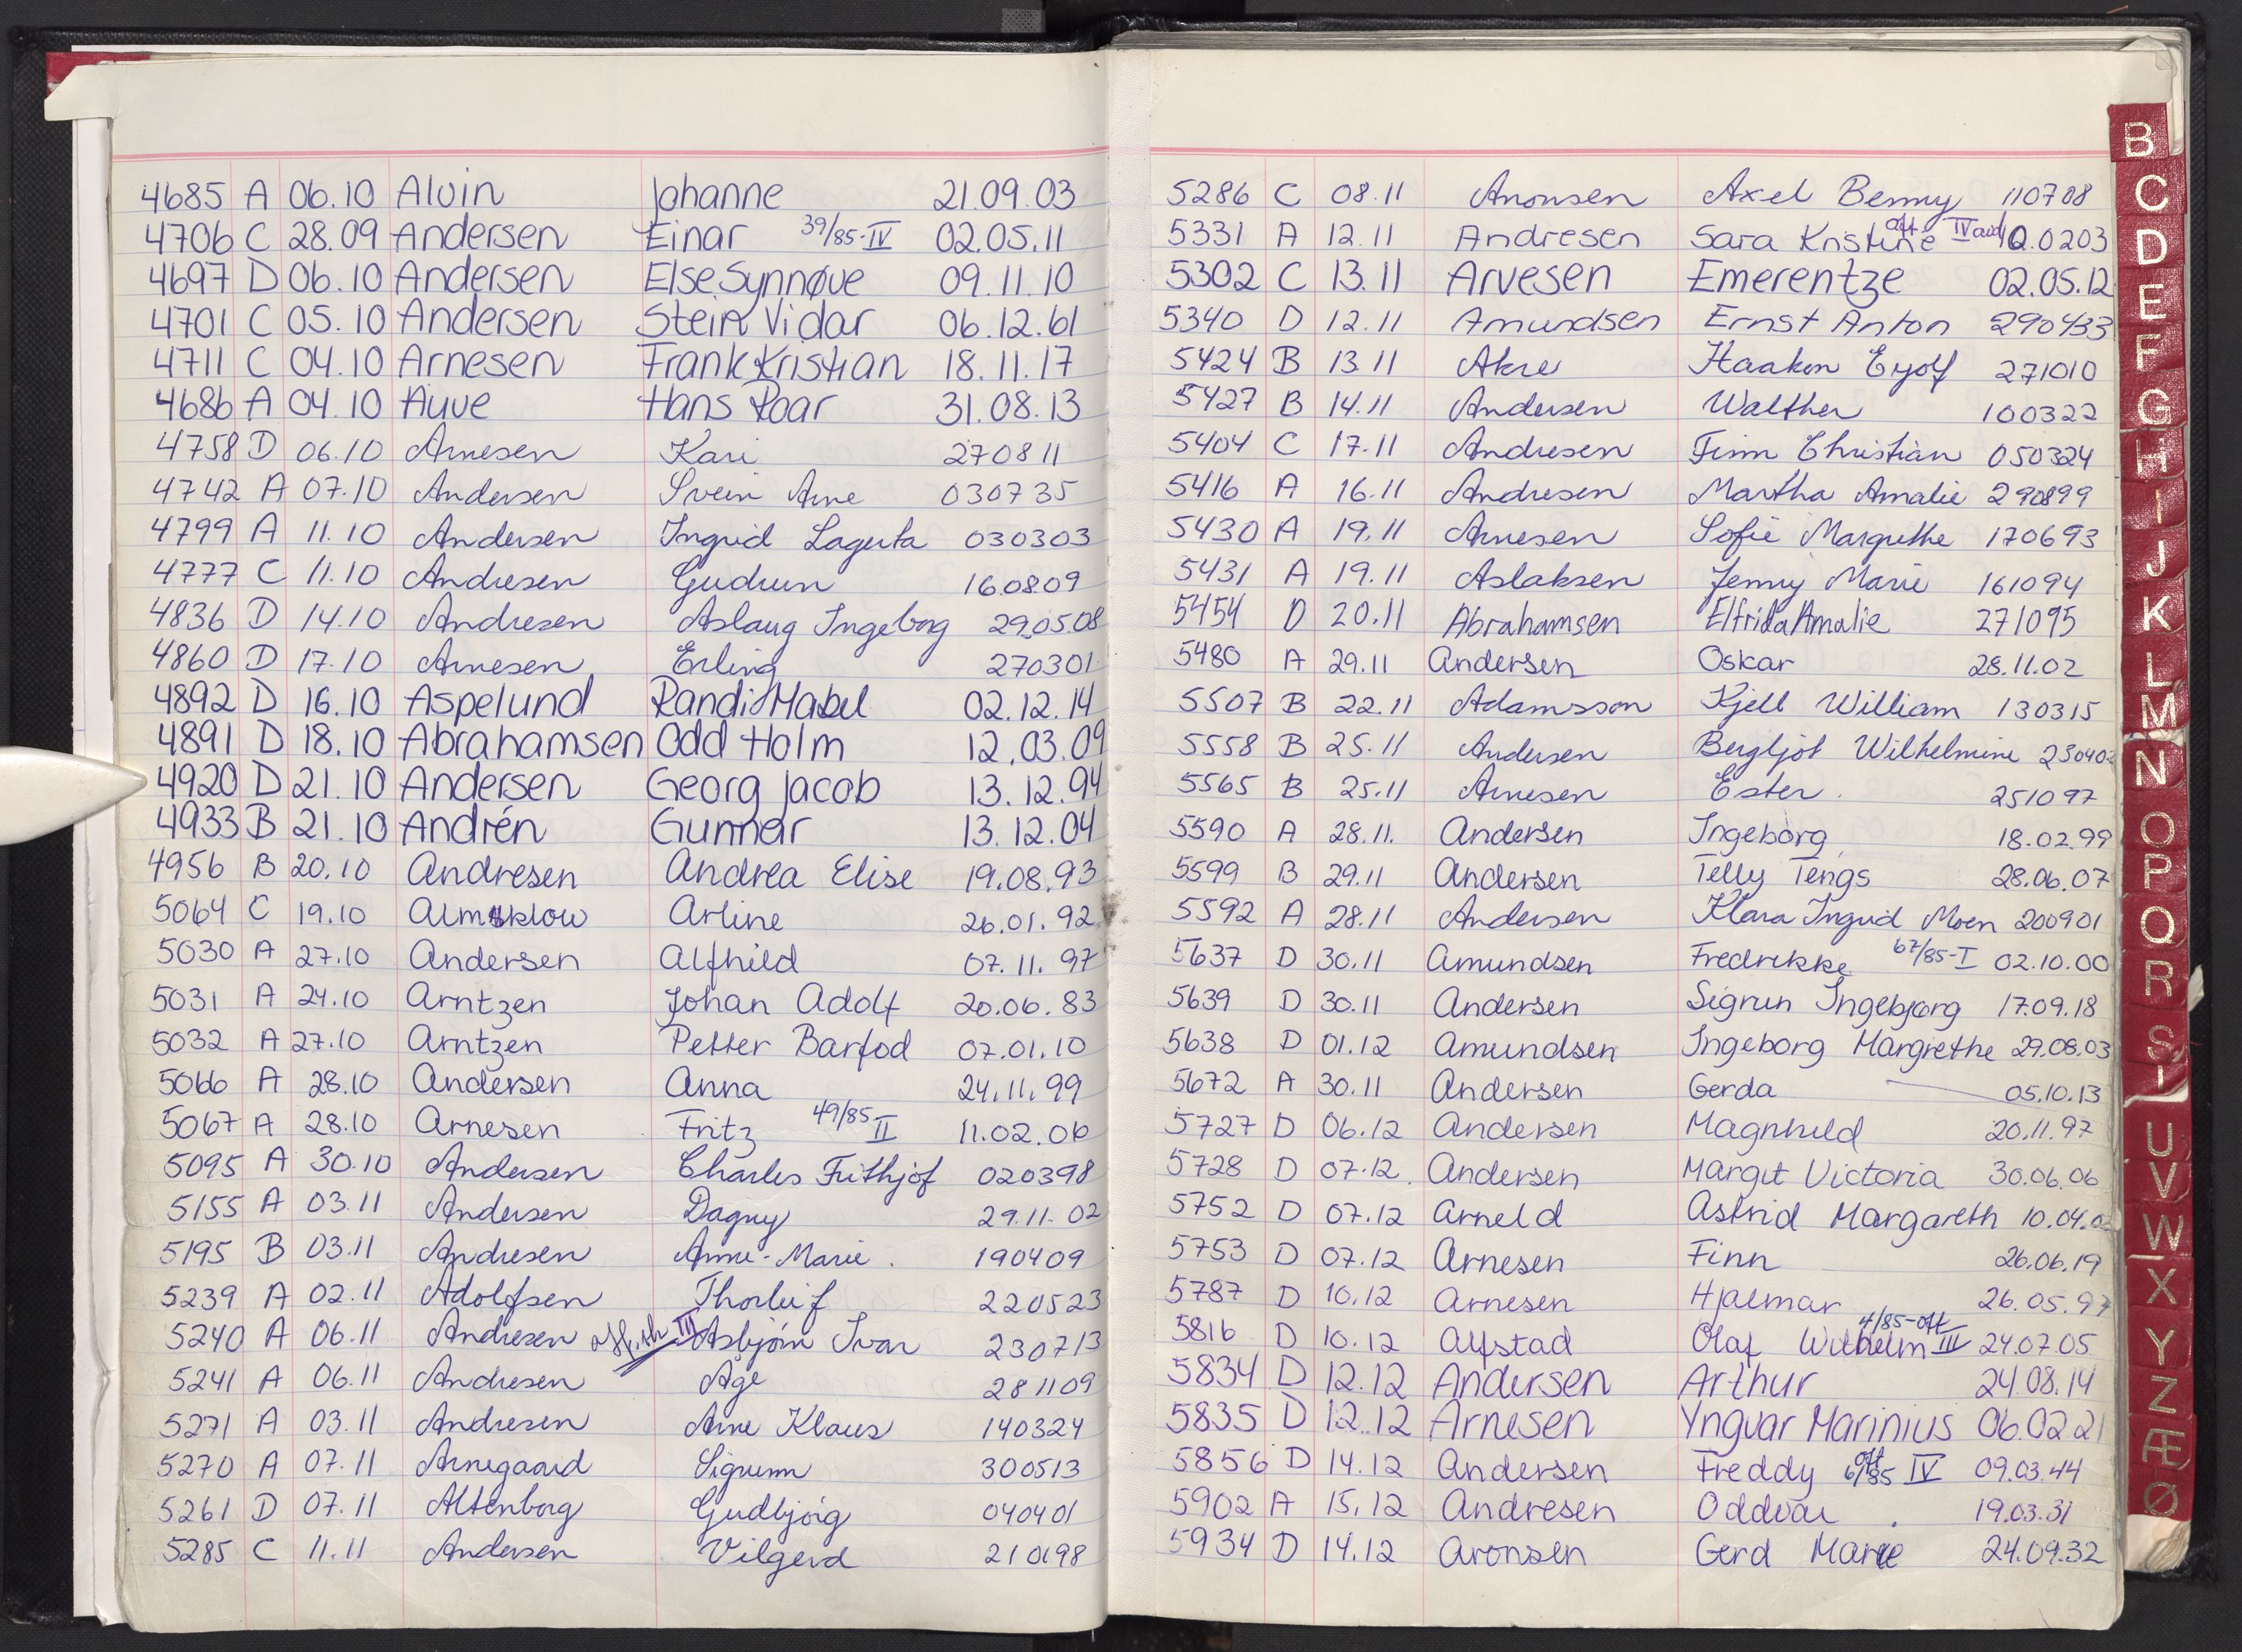 4685 A 06.10 Alvin Johanne 21.09.03
4706 C 28.09 Andersen Einar 39/85-IV 02.05.11
4697 D 06.10 Andersen Else Synnøve 09.11.10
4701 C 05.10 Andersen Stein Vidar 06.12.61
4711 C 04.10 Arnesen Frank Kristian 18.11.17
4686 A 04.10 Auve Hans Roar 31.08.13
4758 D 06.10 Arnesen Kari 270811
4742 A 07.10 Andersen Svein Arne 030735
4799 A 11.10 Andersen Ingrid Lagerta 030303
4777 C 11.10 Andresen Gudrun 160809
4836 D 14.10 Andresen Aslaug Ingeborg 29.05.08
4860 D 17.10 Arnesen Erling 270301
4892 D 16.10 Aspelund Randi Mabel 02.12.14
4891 D 18.10 Abrahamsen Odd Holm 12.03.09
4920 D 21.10 Andersen Georg Jacob 13.12.94
4933 B 21.10 Andrén Gunnar 13.12.04
4956 B 20.10 Andresen Andrea Elise 19.08.93
5064 C 19.10 Almsklow Arline 26.01.92
5030 A 27.10 Andersen Alfhild 07.11.97
5031 A 24.10 Arntzen Johan Adolf 20.06.83
5032 A 27.10 Arntzen Petter Barfod 07.01.10
5066 A 28.10 Andersen Anna 24.11.99
5067 A 28.10 Arnesen Fritz 49/85 II 11.02.06
5095 A 30.10 Andersen Charles Frithjof 020398
5155 A 03.11 Andersen Dagny 29.11.02
5195 B 03.11 Andresen Anne-Marie 190409
5239 A 02.11 Adolfsen Thorleif 220523
5240 A 06.11 Andresen III Asbjørn Ivar 230713
5241 A 06.11 Andresen Åge 281109
5271 A 03.11 Andresen Arne Klaus 140324
5270 A 07.11 Arnegaard Sigrunn 300513
5261 D 07.11 Altenborg Gudbjørg 040401
5285 C 11.11 Andersen Vilgerd 210198
5286 C 08.11 Aronsen Axel Benny 110708
5331 A 12.11 Andresen Sara Kristine oft IV avd 10.0203
5302 C 13.11 Arvesen Emerentze 02.05.12
5340 D 12.11 Amundsen Ernst Anton 290433
5424 B 13.11 Akre Haakon Eyolf 271010
5427 B 14.11 Andersen Walther 100322
5404 C 17.11 Andresen Finn Christian 050324
5416 A 16.11 Andresen Martha Amalie 290899
5430 A 19.11 Arnesen Sofie Margrethe 170693
5431 A 19.11 Aslaksen Jenny Marie 161094
5454 D 20.11 Abrahamsen Elfrida Amalie 271095
5480 A 29.11 Andersen Oskar 28.11.02
5507 B 22.11 Adamsson Kjell William 130315
5558 B 25.11 Andersen Bergljot Wilhelmine 230402
5565 B 25.11 Arnesen Ester 251097
5590 A 28.11. Andersen Ingeborg 18.02.99
5599 B 29.11 Andersen Telly Tengs 28.06.07
5592 A 28.11 Andersen Klara Ingrid Moen 200901
5637 D 30.11 Amundsen Fredrikke 67/85-I 02.10.00
5639 D 30.11 Andersen Sigrun Ingebjørg 17.09.18
5638 D 01.12 Amundsen Ingeborg Margrethe 29.08.03
5672 A 30.11 Andersen Gerda 05.10.13
5727 D 06.12 Andersen Magnhild 20.11.97
5728 D 07.12 Andersen Margit Victoria 30.06.06
5752 D 07.12 Arneld Astrid Margareth 10.04.0
5753 D 07.12 Arnesen Finn 26.06.19
5787 D 10.12 Arnesen Hjalmar 26.05.97
5816 D 10.12 Alfstad Olaf Wilhelm 4/85-oft III 24.07.05
5834 D 12.12 Andersen Arthur 24.08.14
5835 D 12.12 Arnesen Yngvar Marinius 06.02.21
5856 D 14.12 Andersen Freddy oft 6/85 IV 09.03.44
5902 A 15.12 Andresen Oddvar 19.03.31
5934 D 14.12 Aronsen Gerd Marie 24.09.32
B
C
D
E
F
G
H
I
J
K
L
M
N
O
P
Q
R
S
U
V
W
X
Y
Z
Æ
Ø